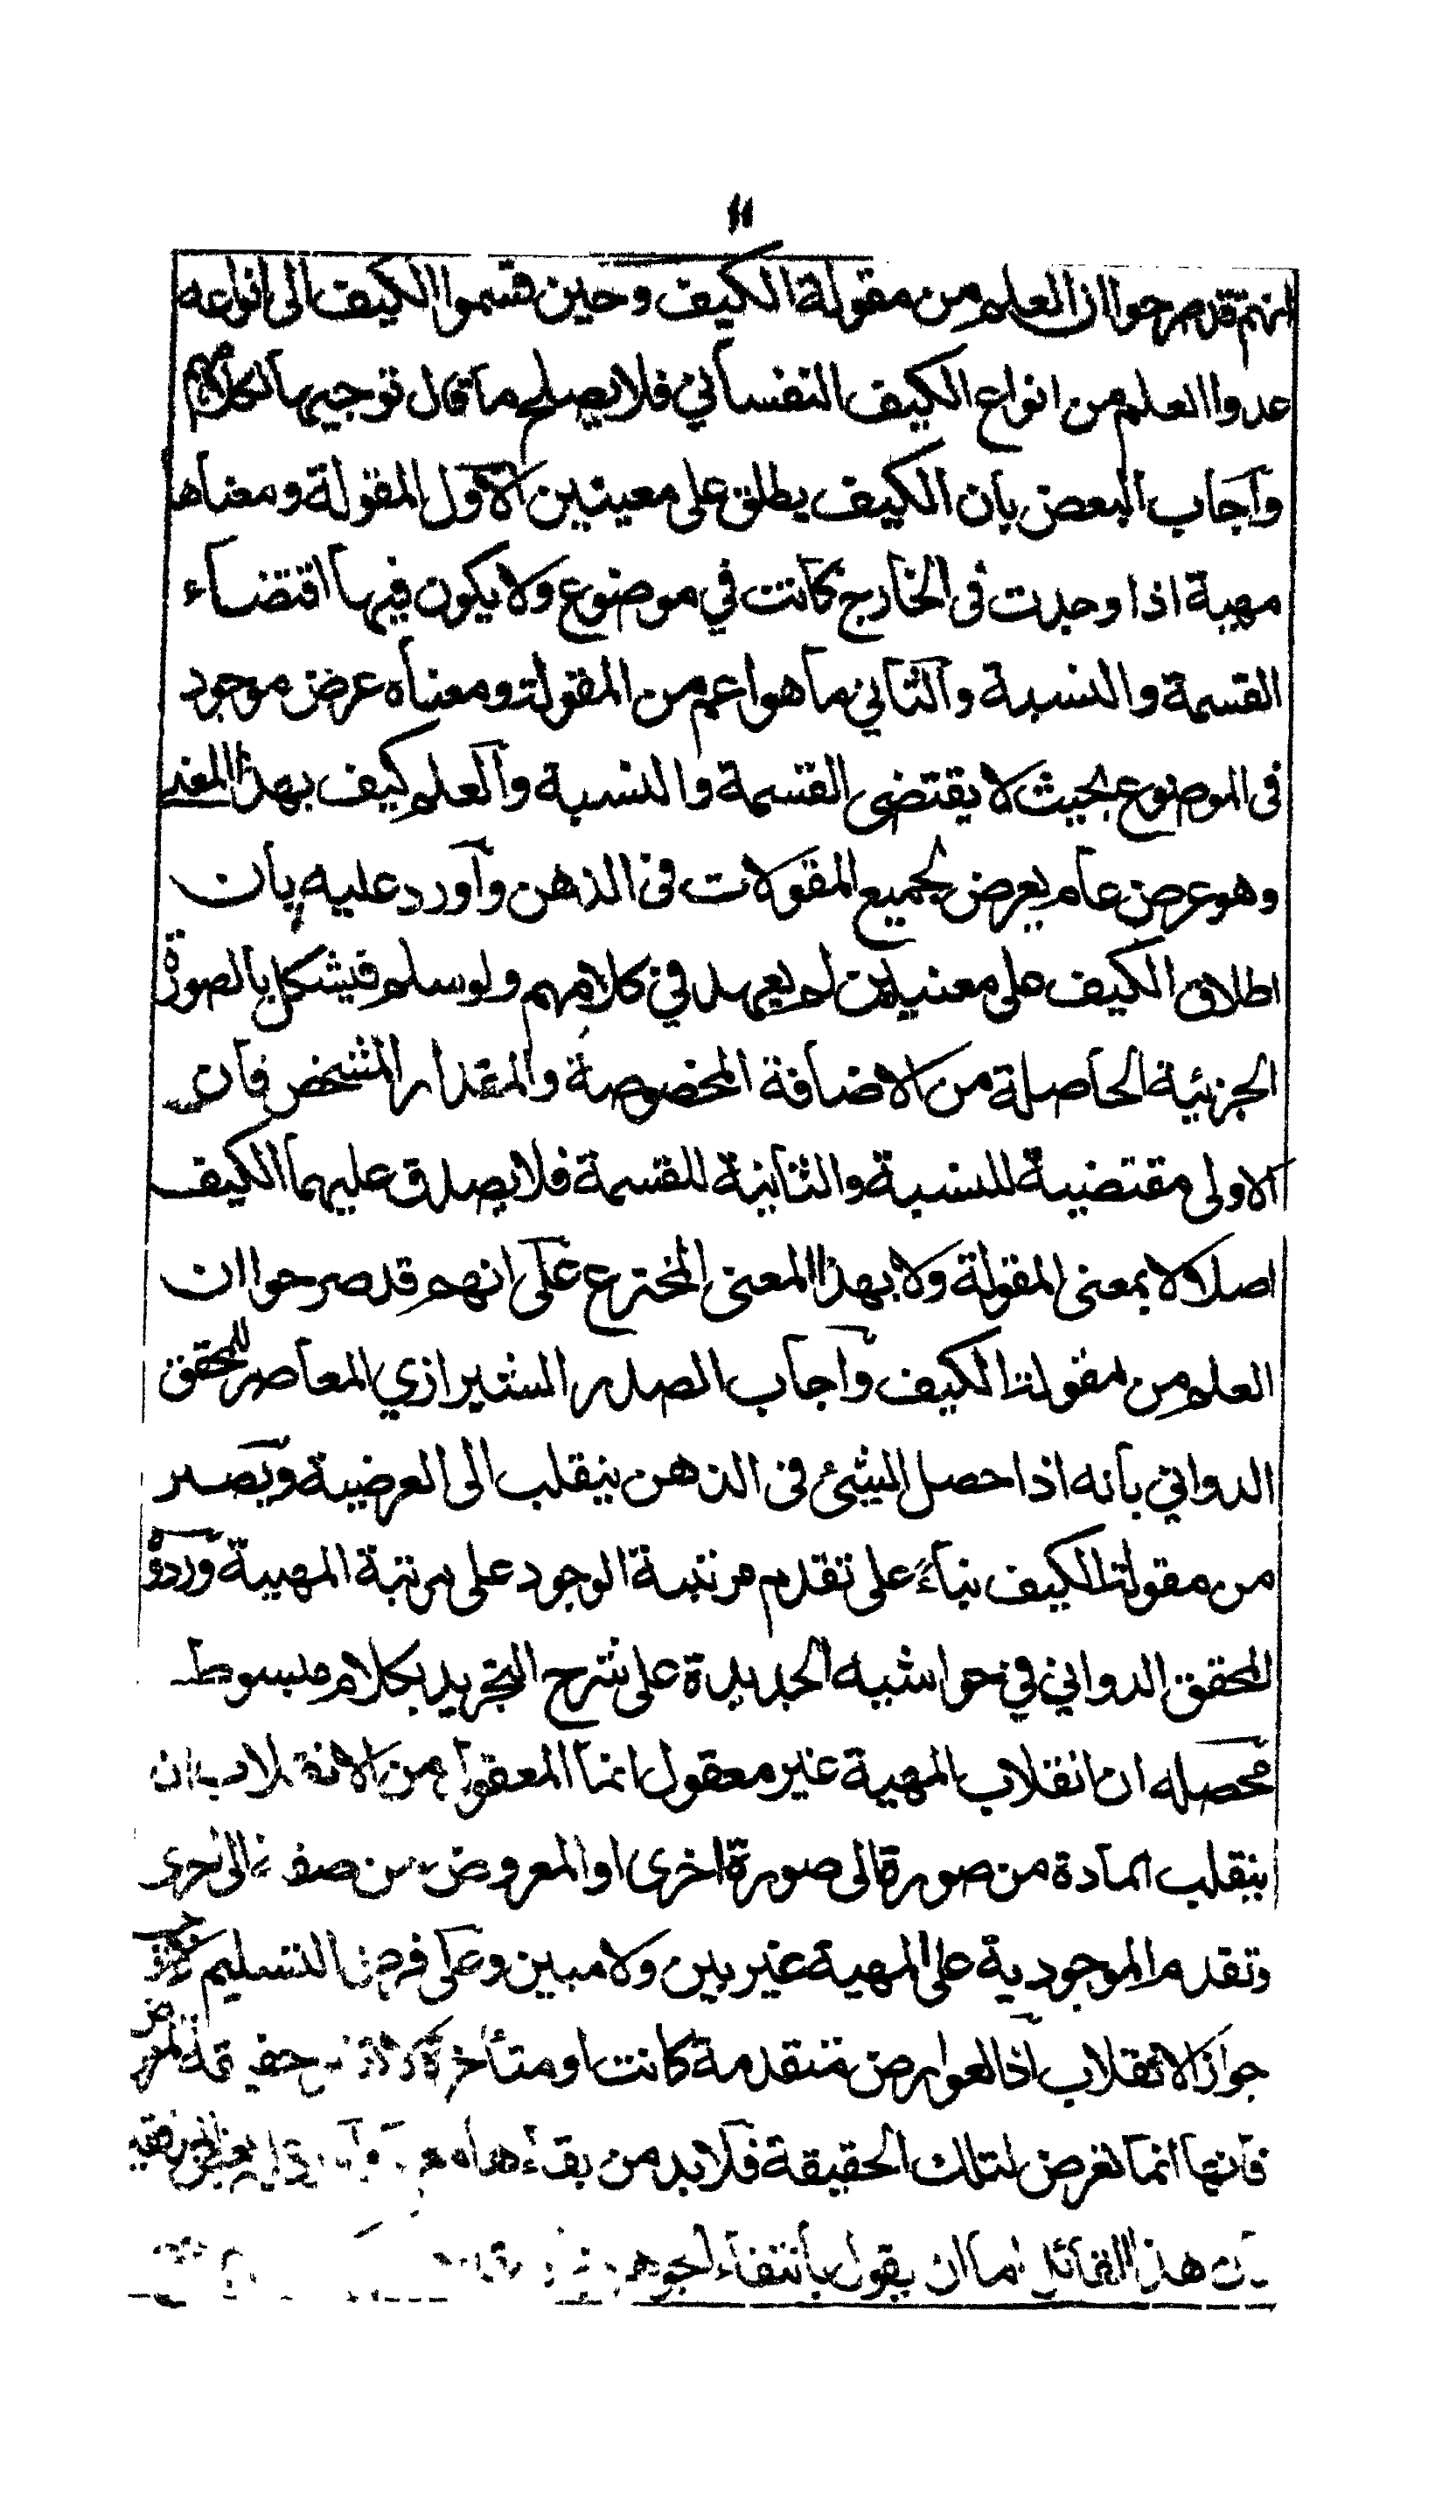 ١١
انهم قد صرحوا ان العلم من مقولة الكيف وحين قسموا الكيف الى انواعه
عدوا العلم من انواع الكيف النفساني فلا يصلح ما قال توجيها لكلامهم
وآجاب البعض بان الكيف يطلق على معينين الاول المقولة ومعناها
مهية اذا وجدت فى الخارج كانت في موضوع ولا يكون فيها اقتضاء
القسمة والنسبة والثاني ما هو اعم من المقولة ومعناه عرض موجود
فى الموضوع بحيث لا يقتضى القسمة والنسبة والعلم كيف بهذا المعنى
وهو عرض عام يعرض لجميع المقولات فى الذهن وآورد عليه بان
اطلاق الكيف على معنيين لم يعهد في كلامهم ولو سلم فيشكل بالصورة
الجزئية الحاصلة من الاضافة المخصوصة والمقدار المشخص فان
الاولى مقتضية للنسبة والثانية للقسمة فلا يصدق عليهما الكيف
اصلا لا بمعنى المقولة ولا بهذا المعنى المخترع على انهم قد صرحوا ان
العلم من مقولة الكيف وآجاب الصدر الشيرازي المعاصر للمحقق
الدواني بانه اذا حصل الشئ فى الذهن ينقلب الى العرضية ويصير
من مقولة الكيف بناءً على تقدم مرتبة الوجود على مرتبة المهية وردّه
المحقق الدواني في حواشيه الجديدة على شرح التجريد بكلام مبسوط
محصله ان انقلاب المهية غير معقول انما المعقول من الانقلاب ان
ينقلب المادة من صورة الى صورة اخرى او المعروض من صفة الى اخرى
وتقدم الموجودية على المهية غير بين ولا مبين وعلى فرض التسليم لا يوجب
جواز الانقلاب اذ العوارض متقدمة كانت او متأخرة لا حقيقة المعروض
فانها انما تعرض لتلك الحقيقة فلا بد من بقاء هاه
هذا القائل اما ان يقول بانتفاء الجوهر